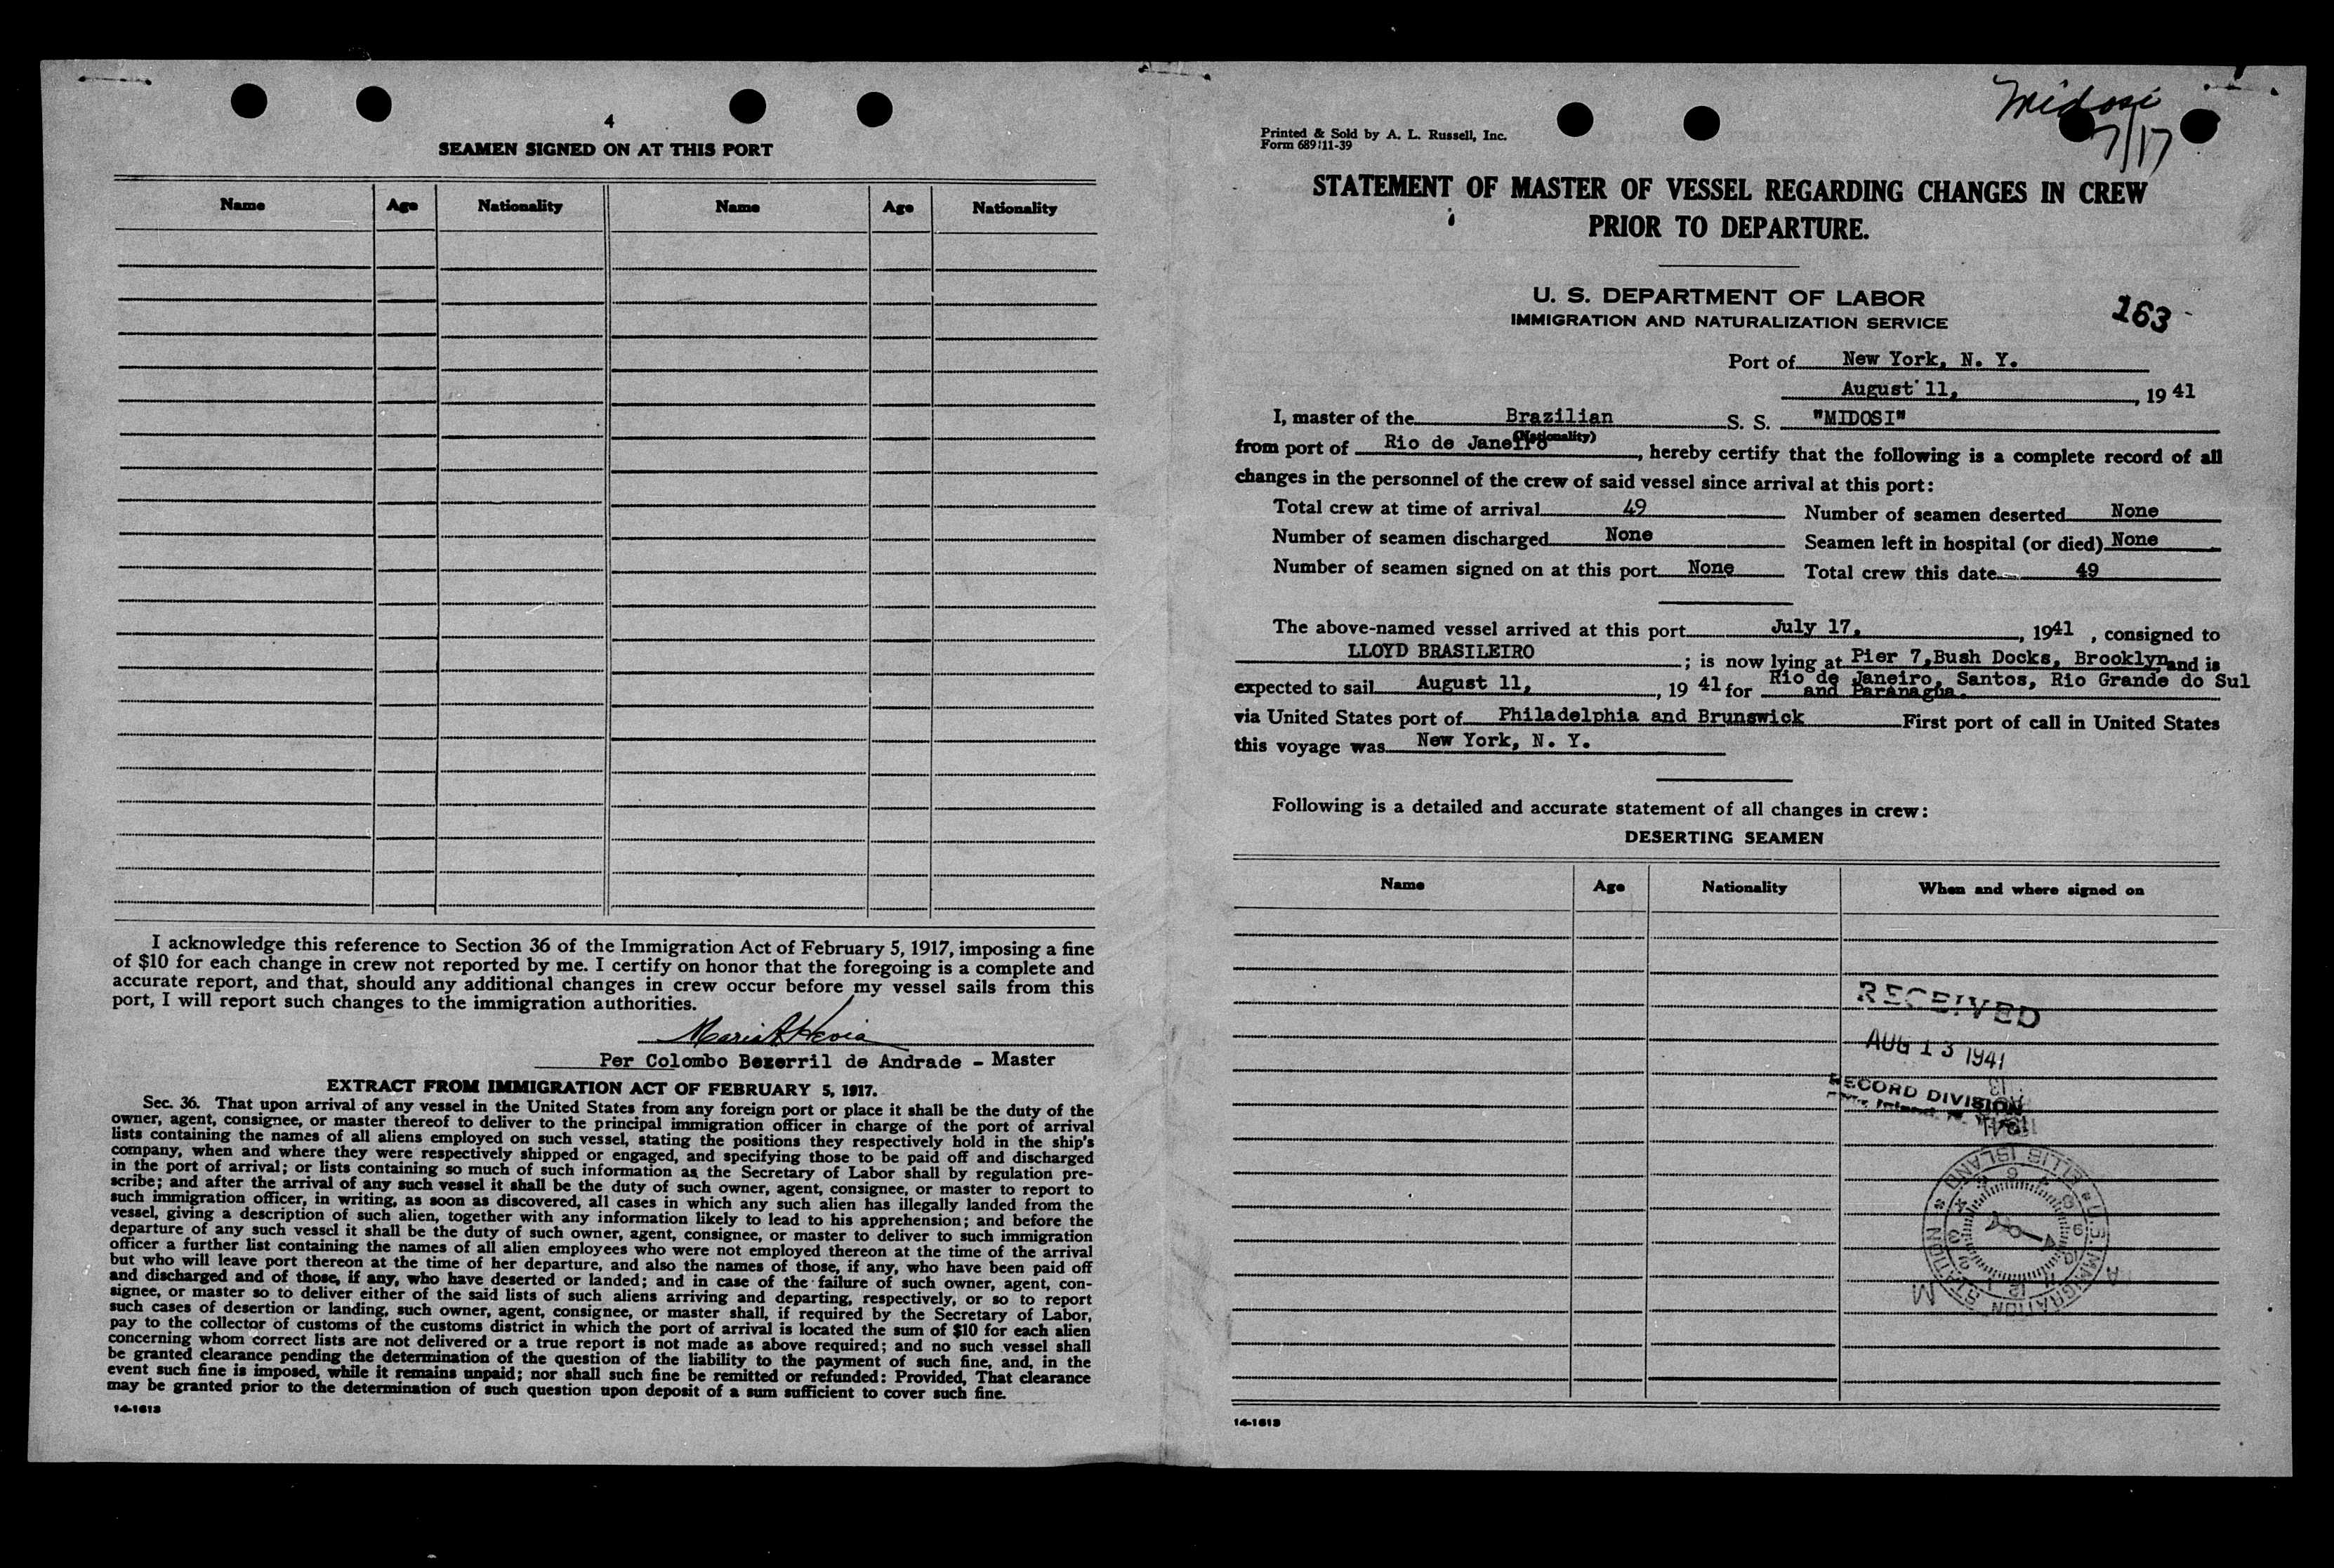 4
SEAMEN SIGNED ON AT THIS PORT
Name Age Nationality Name Age Nationality
I acknowledge this reference to Section 36 of the Immigration Act of February 5, 1917, imposing a fine
of $10 for each change in crew not reported by me. I certify on honor that the foregoing is a complete and
accurate report, and that, should any additional changes in crew occur before my vessel sails from this
port, I will report such changes to the immigration authorities.
Per Colombo Bezerril de Andrade - Master
EXTRACT FROM IMMIGRATION ACT OF FEBRUARY 5, 1917.
Sec. 36. That upon arrival of any vessel in the United States from any foreign port or place it shall be the duty of the
owner, agent, consignee, or master thereof to deliver to the principal immigration officer in charge of the port of arrival
lists containing the names of all aliens employed on such vessel, stating the positions they respectively hold in the ship's
company, when and where they were respectively shipped or engaged, and specifying those to be paid off and discharged
in the port of arrival; or lists containing so much of such information as the Secretary of Labor shall by regulation pre-
scribe; and after the arrival of any such vessel it shall be the duty of such owner, agent, consignee, or master to report to
such immigration officer, in writing, as soon as discovered, all cases in which any such alien has illegally landed from the
vessel, giving a description of such alien, together with any information likely to lead to his apprehension; and before the
departure of any such vessel it shall be the duty of such owner, agent, consignee, or master to deliver to such immigration
officer a further list containing the names of all alien employees who were not employed thereon at the time of the arrival
but who will leave port thereon at the time of her departure, and also the names of those, if any, who have been paid off
and discharged and of those, if any, who have deserted or landed; and in case of the failure of such owner, agent, con-
signee, or master so to deliver either of the said lists of such aliens arriving and departing, respectively, or so to report
such cases of desertion or landing, such owner, agent, consignee, or master shall, if required by the Secretary of Labor,
pay to the collector of customs of the customs district in which the port of arrival is located the sum of $10 for each alien
concerning whom correct lists are not delivered or a true report is not made as above required; and no such vessel shall
be granted clearance pending the determination of the question of the liability to the payment of such fine, and, in the
event such fine is imposed, while it remains unpaid; nor shall such fine be remitted or refunded: Provided, That clearance
may be granted prior to the determination of such question upon deposit of a sum sufficient to cover such fine.
14-1613
Midosi
7/17
Printed & Sold by A. L. Russell, Inc.
Form 689 11-39
STATEMENT OF MASTER OF VESSEL REGARDING CHANGES IN CREW
PRIOR TO DEPARTURE.
U. S. DEPARTMENT OF LABOR
IMMIGRATION AND NATURALIZATION SERVICE
163
Port of New York, N. Y.
August 11, , 19 41
I, master of the Brazilian S. S. "MIDOSI"
(Nationality)
from port of Rio de Janeiro , hereby certify that the following is a complete record of all
changes in the personnel of the crew of said vessel since arrival at this port:
Total crew at time of arrival 49 Number of seamen deserted None
Number of seamen discharged None Seamen left in hospital (or died) None
Number of seamen signed on at this port None Total crew this date 49
The above-named vessel arrived at this port July 17, , 1941 , consigned to
LLOYD BRASILEIRO ; is now lying at Pier 7, Bush Docks, Brooklyn and is
expected to sail August 11, , 19 41 for Rio de Janeiro, Santos, Rio Grande do Sul
and Paranagua.
via United States port of Philadelphia and Brunswick First port of call in United States
this voyage was New York, N. Y.
Following is a detailed and accurate statement of all changes in crew:
DESERTING SEAMEN
Name Age Nationality When and where signed on
RECEIVED
AUG 13 1941
RECORD DIVISION
U.S. IMMIGRATION STATION ELLIS ISLAND
14-1613